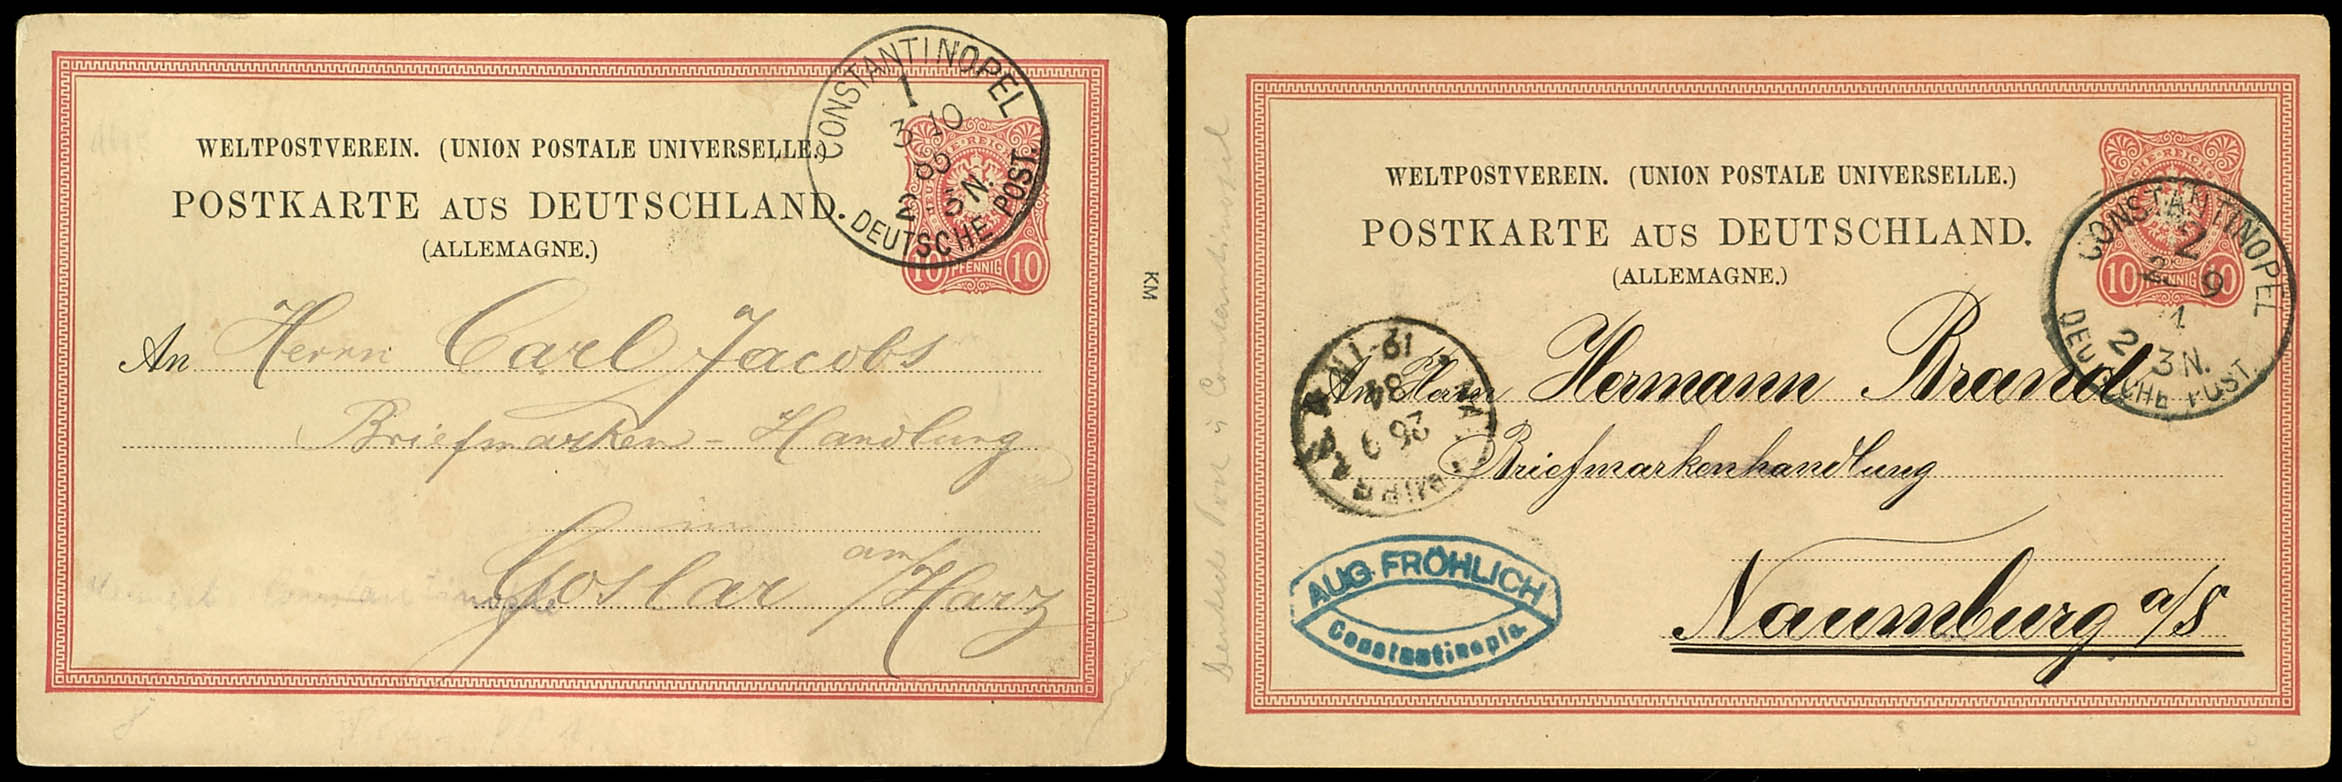 WELTPOSTVEREIN. (UNION POSTALE UNIVERSELLE.)
POSTKARTE AUS DEUTSCHLAND.
(ALLEMAGNE.)
CONSTANTINOPEL
1
3 10
86
2-3N.
DEUTSCHE POST.
DEUTSCHE REICHS
10 PFENNIG 10
KM
An Herrn Carl Jacobs
Briefmarken-Handlung
in
Goslar am/Harz
WELTPOSTVEREIN. (UNION POSTALE UNIVERSELLE.)
POSTKARTE AUS DEUTSCHLAND.
(ALLEMAGNE.)
CONSTANTINOPEL
2
2 9
2 3N.
DEUTSCHE POST.
10 PFENNIG 10
An Herrn Hermann Brand
Briefmarkenhandlung
Naumburg a/S
26 9
84
AUG. FRÖHLICH
Constantinople.
Deutsche Post in Constantinopel